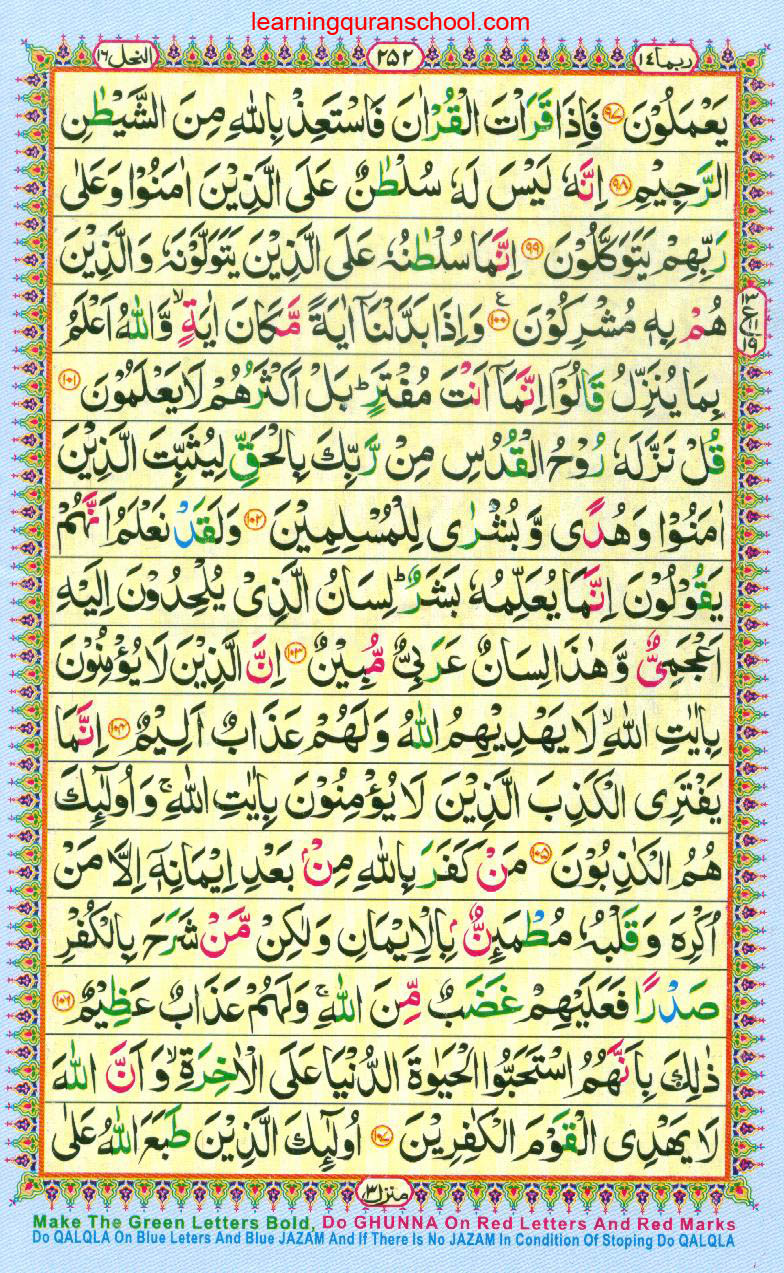 learningquranschool.com
ربما ١٤
٢٥٢
النحل ١٦
يَعْمَلُوْنَ ۹۷ فَاِذَا قَرَاْتَ الْقُرْاٰنَ فَاسْتَعِذْ بِاللّٰهِ مِنَ الشَّيْطٰنِ
الرَّجِيْمِ ۹۸ اِنَّهٗ لَيْسَ لَهٗ سُلْطٰنٌ عَلَى الَّذِيْنَ اٰمَنُوْا وَعَلٰى
رَبِّهِمْ يَتَوَكَّلُوْنَ ۹۹ اِنَّمَا سُلْطٰنُهٗ عَلَى الَّذِيْنَ يَتَوَلَّوْنَهٗ وَالَّذِيْنَ
هُمْ بِهٖ مُشْرِكُوْنَ ۱۰۰ ع وَاِذَا بَدَّلْنَاۤ اٰيَةً مَّكَانَ اٰيَةٍ ۙ وَّاللّٰهُ اَعْلَمُ
بِمَا يُنَزِّلُ قَالُوْۤا اِنَّمَاۤ اَنْتَ مُفْتَرٍ ؕ بَلْ اَكْثَرُهُمْ لَا يَعْلَمُوْنَ ۱۰۱
قُلْ نَزَّلَهٗ رُوْحُ الْقُدُسِ مِنْ رَّبِّكَ بِالْحَقِّ لِيُثَبِّتَ الَّذِيْنَ
اٰمَنُوْا وَهُدًى وَّبُشْرٰى لِلْمُسْلِمِيْنَ ۱۰۲ وَلَقَدْ نَعْلَمُ اَنَّهُمْ
يَقُوْلُوْنَ اِنَّمَا يُعَلِّمُهٗ بَشَرٌ ؕ لِسَانُ الَّذِيْ يُلْحِدُوْنَ اِلَيْهِ
اَعْجَمِيٌّ وَّهٰذَا لِسَانٌ عَرَبِيٌّ مُّبِيْنٌ ۱۰۳ اِنَّ الَّذِيْنَ لَا يُؤْمِنُوْنَ
بِاٰيٰتِ اللّٰهِ ۙ لَا يَهْدِيْهِمُ اللّٰهُ وَلَهُمْ عَذَابٌ اَلِيْمٌ ۱۰۴ اِنَّمَا
يَفْتَرِى الْكَذِبَ الَّذِيْنَ لَا يُؤْمِنُوْنَ بِاٰيٰتِ اللّٰهِ ۚ وَاُولٰٓئِكَ
هُمُ الْكٰذِبُوْنَ ۱۰۵ مَنْ كَفَرَ بِاللّٰهِ مِنْۢ بَعْدِ اِيْمَانِهٖۤ اِلَّا مَنْ
اُكْرِهَ وَقَلْبُهٗ مُطْمَئِنٌّۢ بِالْاِيْمَانِ وَلٰكِنْ مَّنْ شَرَحَ بِالْكُفْرِ
صَدْرًا فَعَلَيْهِمْ غَضَبٌ مِّنَ اللّٰهِ ۚ وَلَهُمْ عَذَابٌ عَظِيْمٌ ۱۰۶
ذٰلِكَ بِاَنَّهُمُ اسْتَحَبُّوا الْحَيٰوةَ الدُّنْيَا عَلَى الْاٰخِرَةِ ۙ وَاَنَّ اللّٰهَ
لَا يَهْدِى الْقَوْمَ الْكٰفِرِيْنَ ۱۰۷ اُولٰٓئِكَ الَّذِيْنَ طَبَعَ اللّٰهُ عَلٰى
منزل ٣
Make The Green Letters Bold, Do GHUNNA On Red Letters And Red Marks
Do QALQLA On Blue Leters And Blue JAZAM And If There Is No JAZAM In Condition Of Stoping Do QALQLA